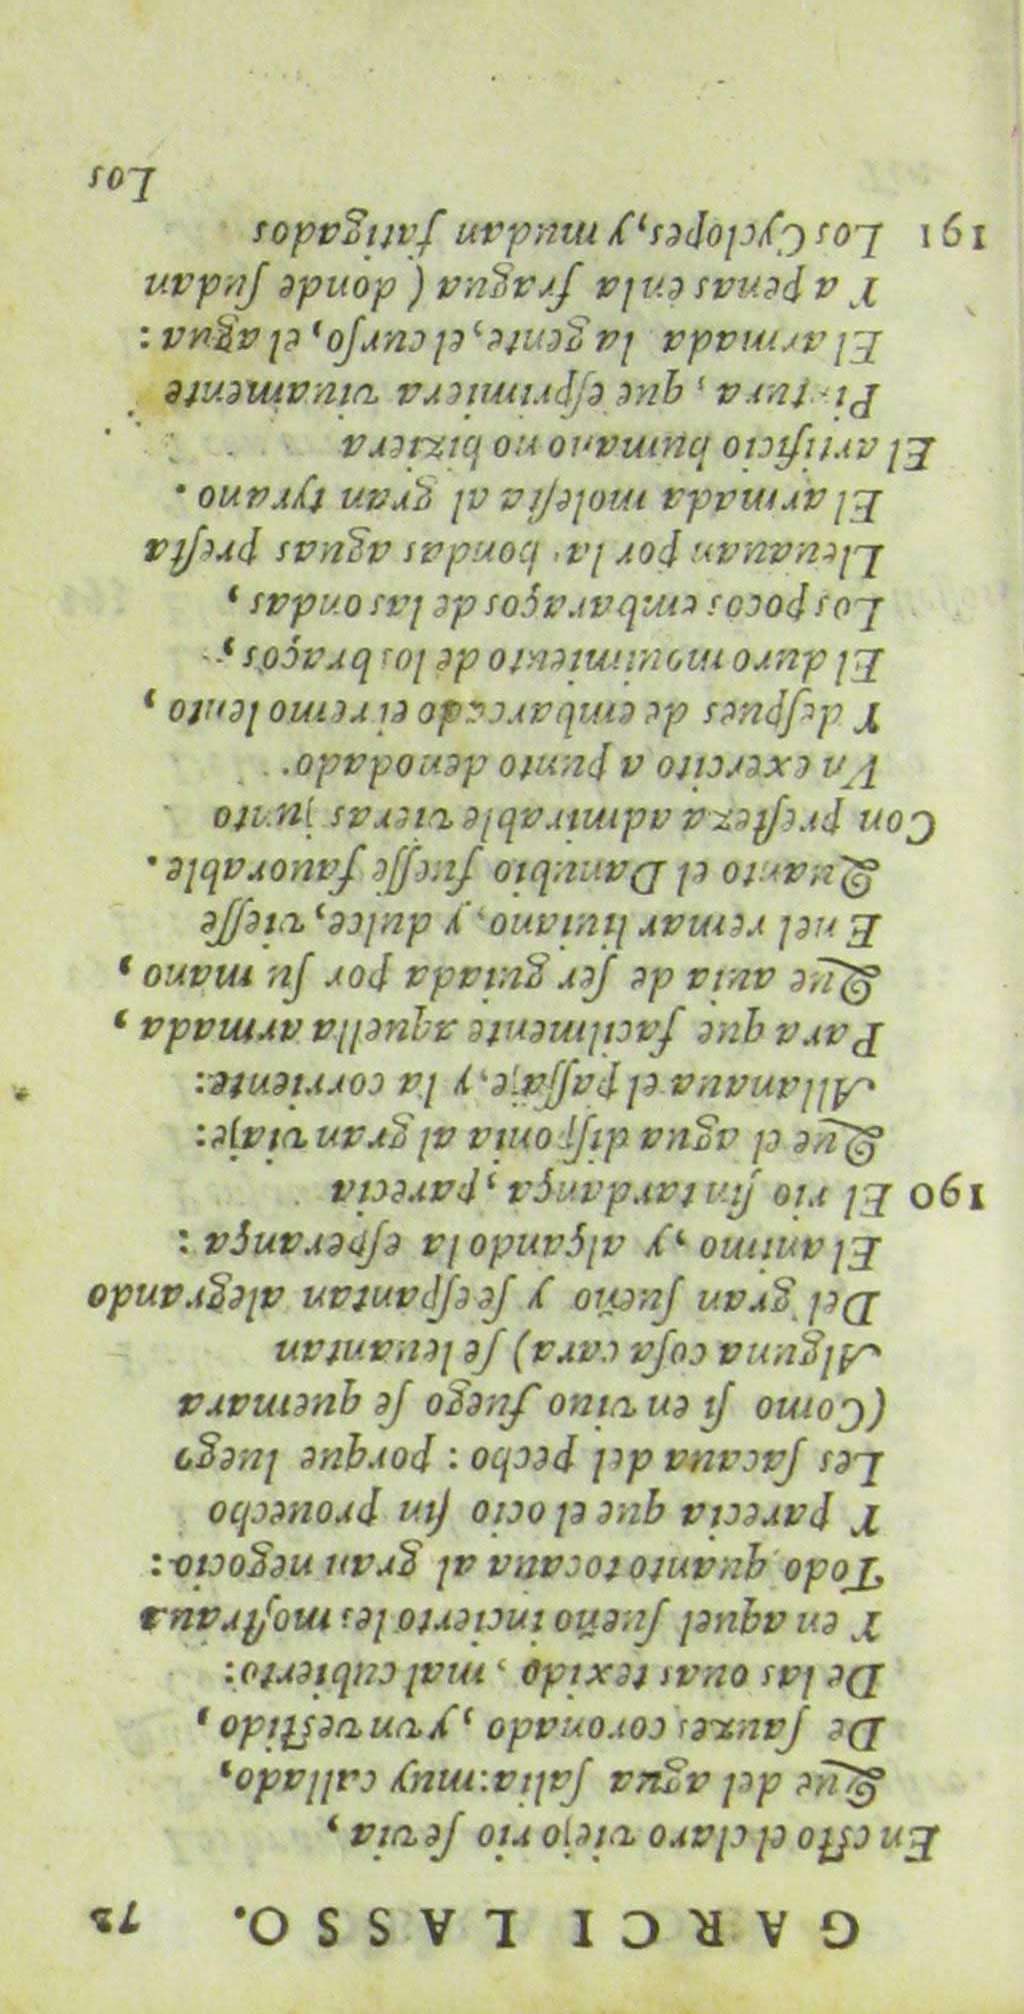 GARCI LASSO. 72
En esto el claro viejo rio se via,
Que del agua salia: muy callado,
De sauzes coronado, y vn vestido,
De las ouas texido, mal cubierto:
Y en aquel sueño incierto les mostraua
Todo quanto tocaua al gran negocio:
Y parecia que el ocio sin prouecho
Les sacaua del pecho: porque luego
(Como si en viuo fuego se quemara
Alguna cosa cara) se leuantan
Del gran sueño y se espantan alegrando
El animo, y alçando la esperança:
190 El rio sin tardança, parecia
Que el agua disponia al gran viaje:
Allanaua el passaje, y la corriente:
Para que facilmente aquella armada,
Que auia de ser guiada por su mano,
En el remar liuiano, y dulce, viesse
Quanto el Danubio fuesse fauorable.
Con presteza admirable vieras junto
Vn exercito a punto denodado.
Y despues de embarcado el remo lento,
El duro mouimiento de los braços,
Los pocos embaraços de las ondas,
Lleuauan por las hondas aguas presta
El armada molesta al gran tyrano.
El artificio humano no hiziera
Pintura, que esprimiera viuamente
El armada la gente, el curso, el agua:
Y a penas en la fragua (donde sudan
191 Los Cyclopes, y mudan fatigados
Los